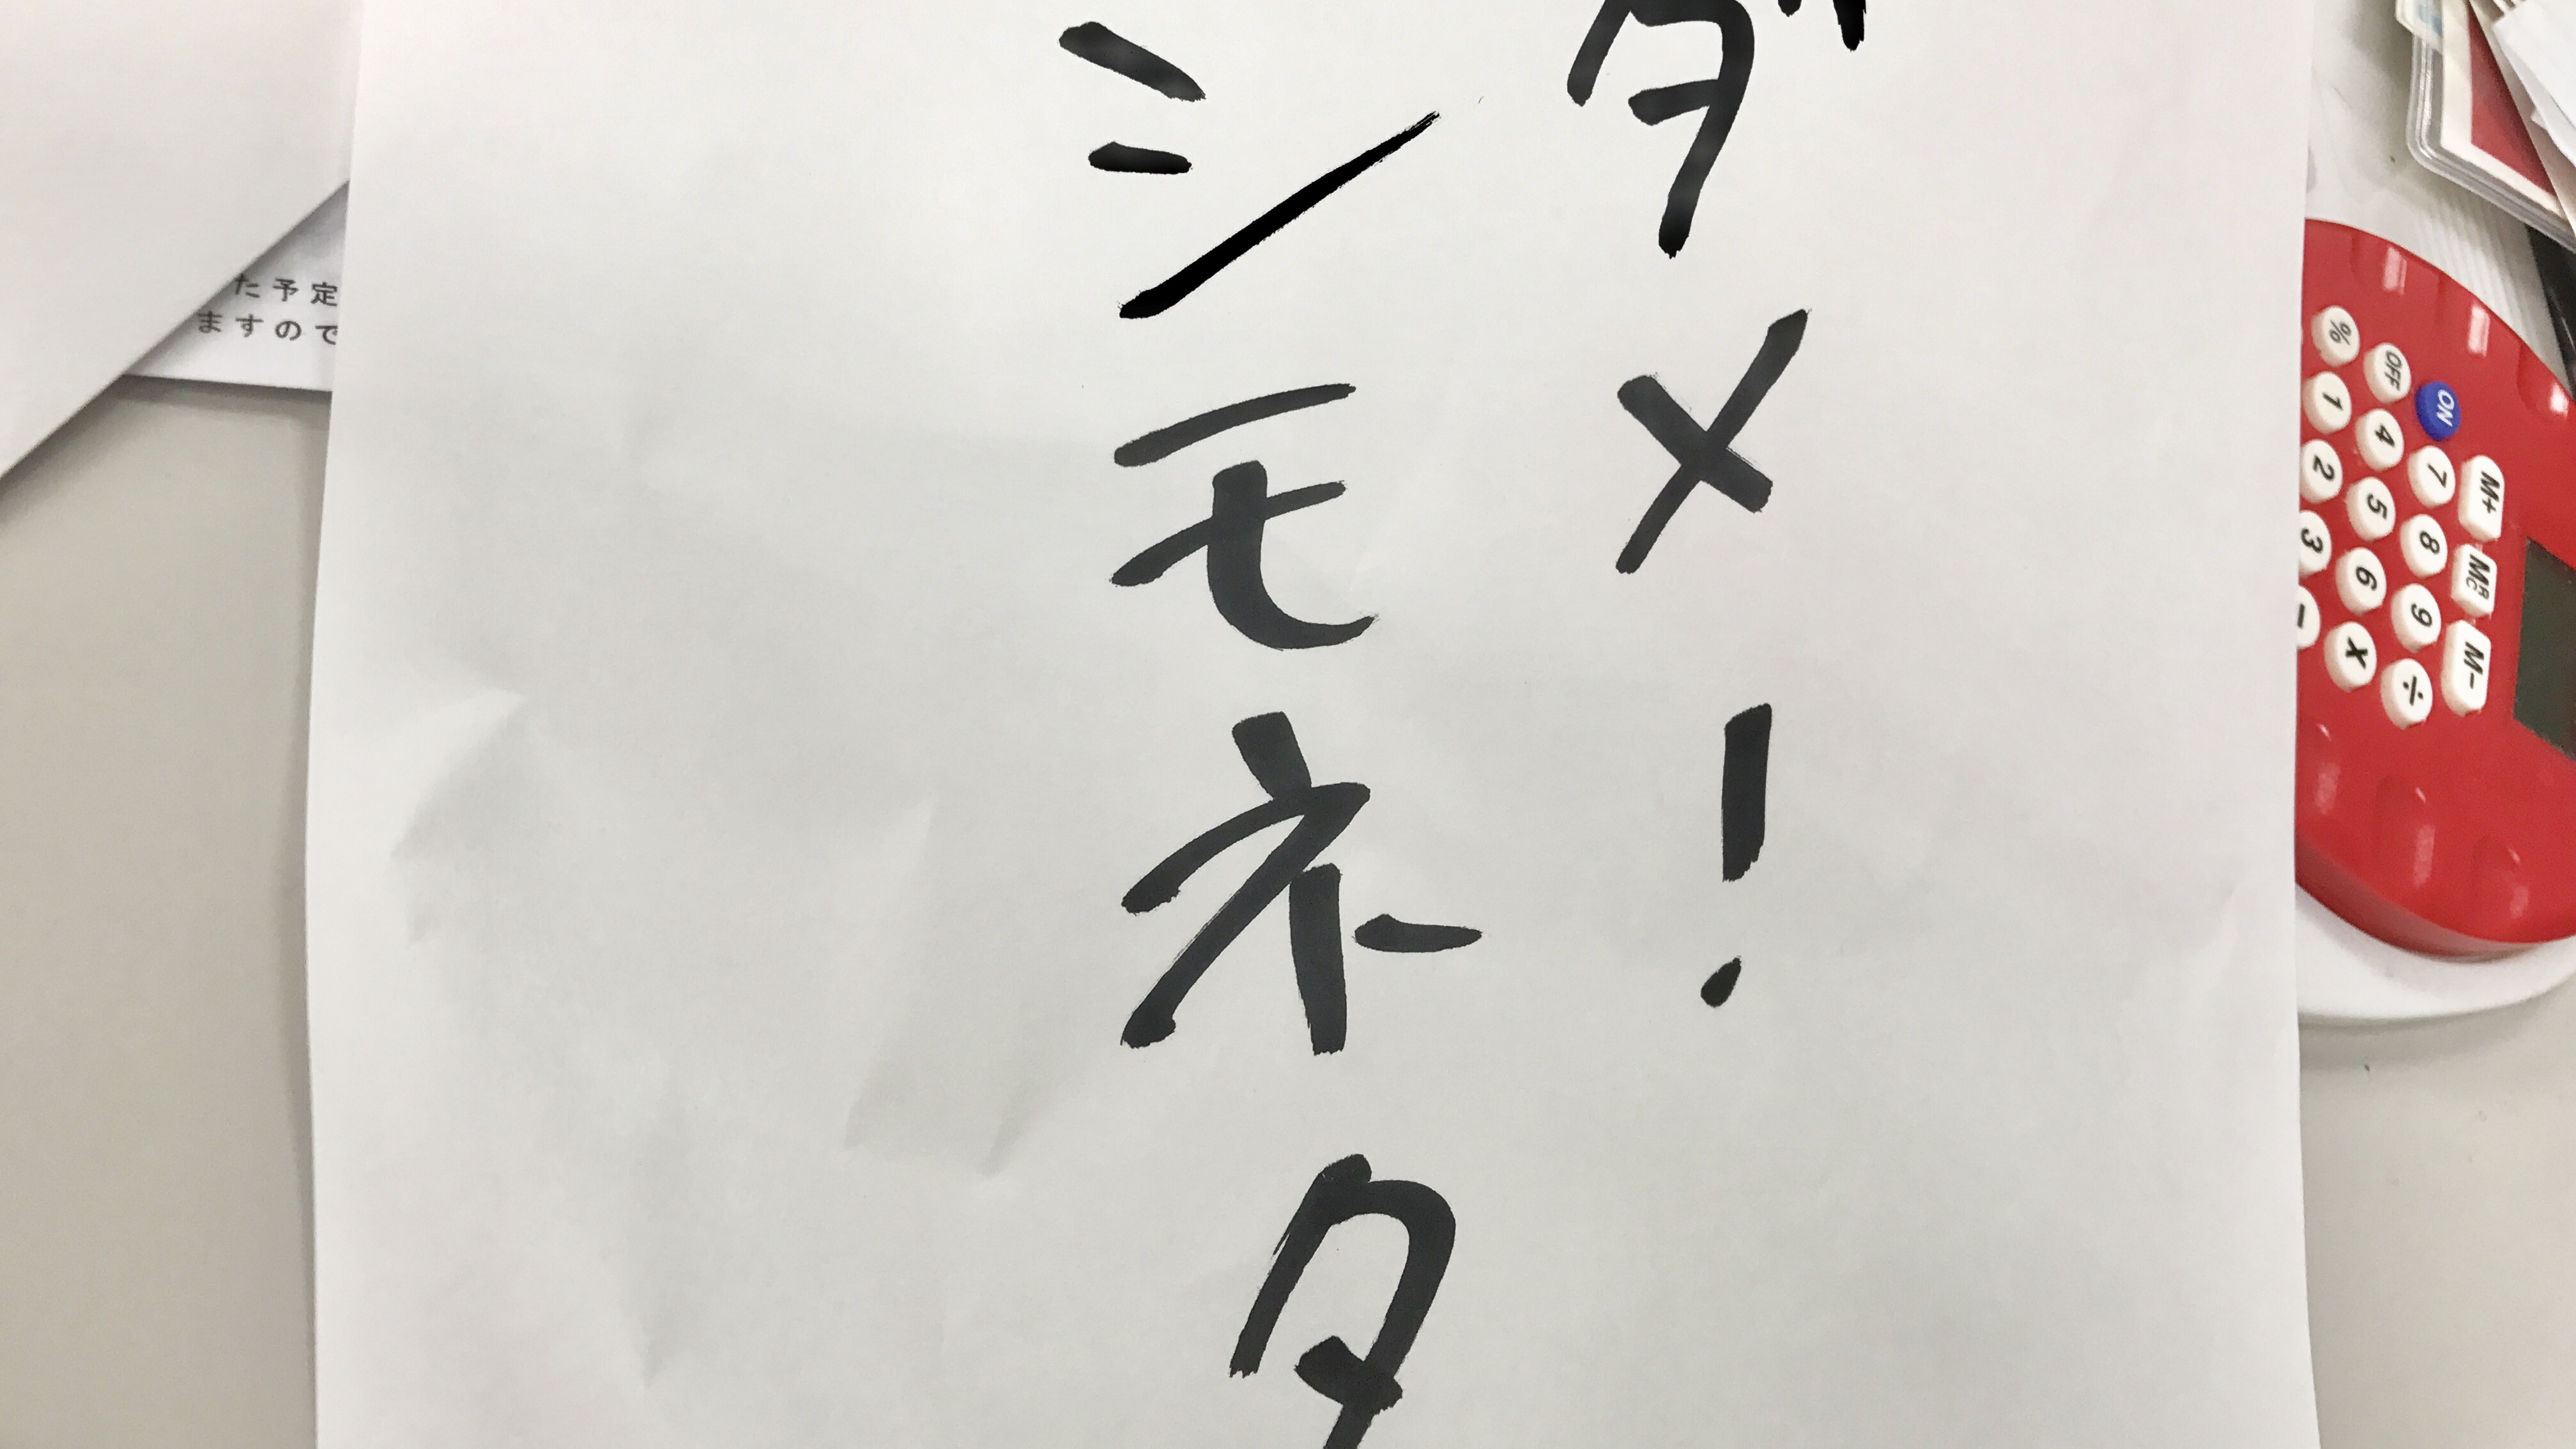 ダメ!
シモネタ
た予定
ますので
ON
OFF
%
M+ MRC M-
7 8 9 ÷
4 5 6 ×
1 2 3 -